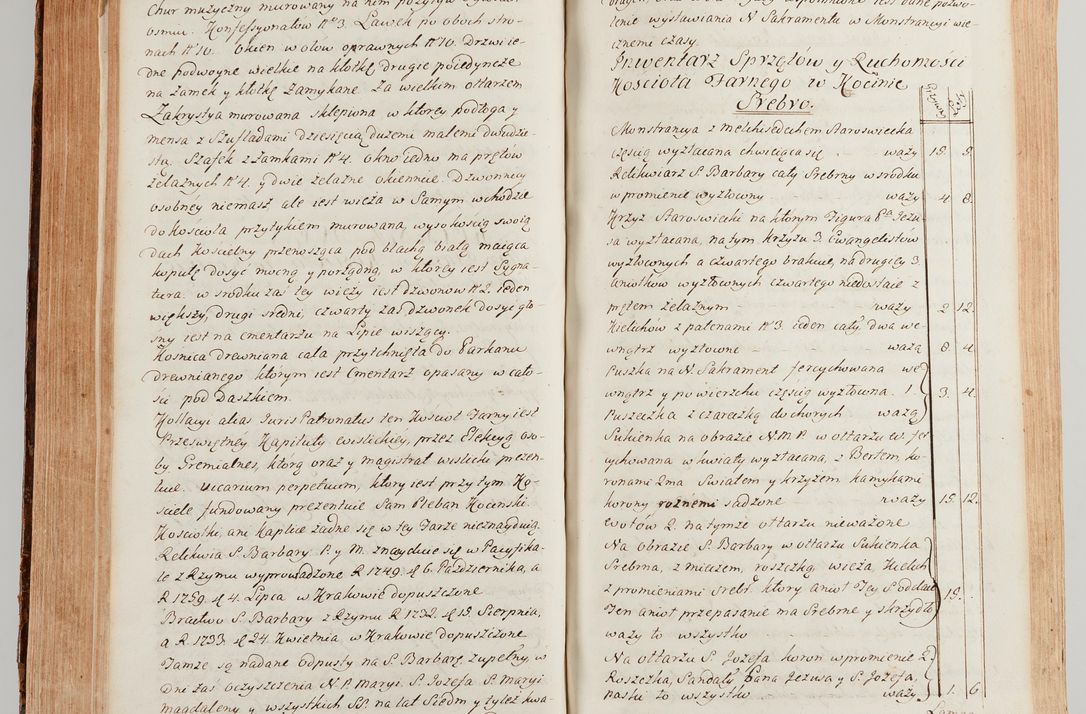 Chur muzyczny murowany na nim pozytyw o głosach
osmiu. Konfessyonałow N° 3. Ławek po oboch stro-
nach N° 10. Okien w ołow oprawnych N° 10. Drzwi ie-
dne podwoyne wielkie na kłotkę drugie poiedyncze
na zamek y kłotkę zamykane. Za wielkim ołtarzem
Zakrystya murowana sklepiona w ktorey podłoga y
mensa z Szufladami dziesięcią dużemi małemi dwudzie-
stu. Szafek z zamkami N° 4. okno iedno ma prętow
żelaznych N° 4. y dwie żelazne okiennice. Dzwonnicy
osobney niemasz ale iest wieża w Samym wchodzie
do kościoła przytykiem murowana, wysokością swoią
dach Kościelny przenosząca pod blachą białą maiąca
kopułę dosyć mocną y porządną, w ktorey iest Sygna-
tura. w srodku zaś tey wieży iest dzwonow N° 2. ieden
większy, drugi sredni, czwarty zaś dzwonek dosyć gło-
sny iest na cmentarzu na Lipie wiszący.
Kosnica drewniana cała przytchnięta do Parkanu
drewnianego ktorym iest Cmentarz opasany w cało-
ści pod Daszkiem.
Kollacyi alias Juris Patronatus ten Kościoł Farny iest
Przeświętney Kapituły wislickiey, przez Elekcyą oso-
by Gremialnes, ktorą oraz y magistrat wislicki prezen-
tuie. Vicarium perpetuum, ktory iest przy tym Ko-
sciele fundowany prezentuie Sam Pleban Kocinski.
Kościołki, ani kaplice żadne się w tey Farze nieznayduią.
Relikwia S. Barbary P. y M. znayduie się w Pacyfika-
le z Rzymu wyprowadzone R 1749. d 6. Października, a
R 1759. d 4. Lipca w Krakowie dopuszczone
Bractwo S. Barbary z Rzymu R 1732. d 15. Sierpnia,
a R 1733. d 24. Kwietnia w Krakowie dopuszczone
Tamże są nadane odpusty na S. Barbarę zupełny, w
dni zaś oczyszczenia N. P. Maryi. S. Jozefa S. Maryi
Magdaleny y wszystkich SS. na lat Siedm y tyleż kwa-
lenie wystawiania N Sakramentu w Monstrancyi wie-
cznemi czasy.
Inwentarz Sprzętow y Ruchomości
Kościoła Farnego w Kocinie
Srebro.
Monstrancya z Melchisedechem Staroswiecka
częścią wyzłacana chwieiąca się — waży 15 9.
Relikwiarz S. Barbary cały Srebrny w srodku
w promienie wyzłocony — waży 4 8.
Krzyż Staroswiecki na ktorym Figura Pa Jezu-
sa wyzłacana, na tym krzyżu 3. Ewangelistow
wyzłoconych a czwartego brakuie, na drugiey 3
Aniołkow wyzłoconych czwartego niedostaie z
prętem żelaznym — waży 2 12.
Kielichow z patenami N° 3. ieden cały, dwa we-
wnątrz wyzłocone — ważą 8 4.
Puszka na N. Sakrament fercychowana we
wnątrz y po wierzchu częścią wyzłocona 1. 3. 4.
Puszeczka z czareczką do chorych ważą
Sukienka na obrazie N. M. P. w ołtarzu w. fer
cychowana w kwiaty wyzłacana, z Berłem, ko-
ronami 2ma Swiatem y krzyżem kamykami
korony rożnemi sadzone — waży 15 12.
Wotow R. na tymże ołtarzu nieważone
Na obrazie S. Barbary w ołtarzu Sukienka
Srebrna, z mieczem, roszczką wieża Kielich
z promieniami Srebr. ktory anioł Jey S. oddaie 19.
Ten anioł przepasanie ma Srebrne y skrzydła
waży to wszystko
Na ołtarzu S. Jozefa koron w promienie 2.
Roszczka, Sandały Pana Jezusa y S. Jozefa,
paski to wszystko — waży 1. 6